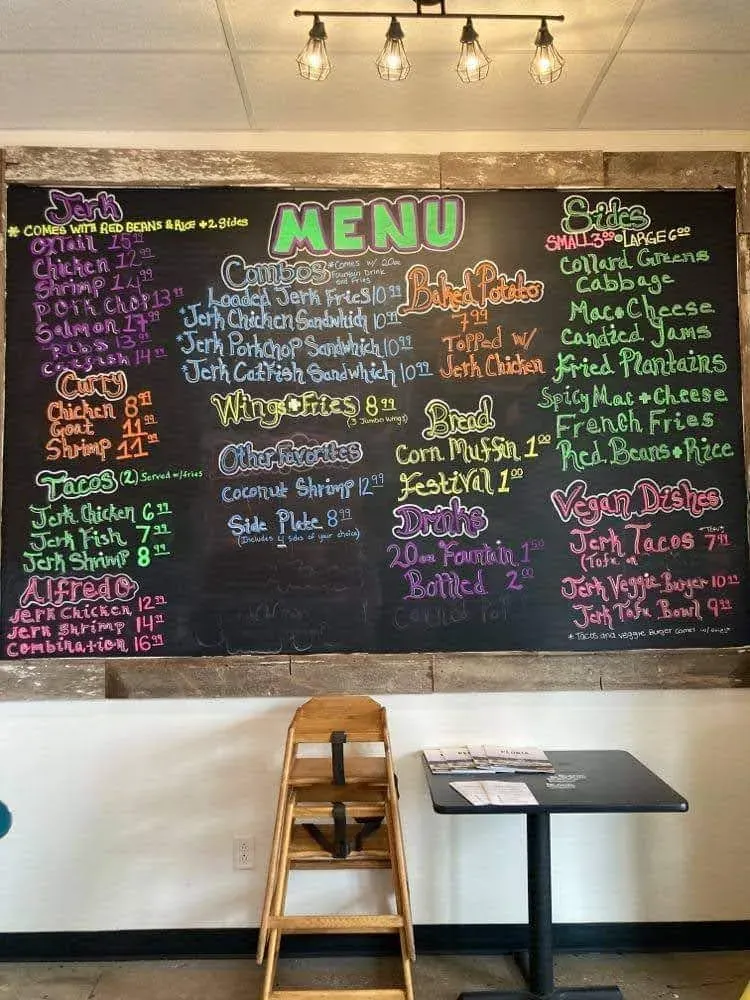 Jerk
* COMES WITH RED BEANS & RICE + 2 Sides
Oxtail 15⁹⁹
Chicken 12⁹⁹
Shrimp 14⁹⁹
Pork Chop 13⁹⁹
Salmon 17⁹⁹
Ribs 13⁹⁹
Catfish 14⁹⁹
Curry
Chicken 8⁹⁹
Goat 11⁹⁹
Shrimp 11⁹⁹
Tacos (2) Served w/fries
Jerk Chicken 6⁹⁹
Jerk Fish 7⁹⁹
Jerk Shrimp 8⁹⁹
Alfredo
Jerk Chicken 12⁹⁹
Jerk Shrimp 14⁹⁹
Combination 16⁹⁹
MENU
Combos *Comes w/ 20oz
Fountain Drink
and Fries
Loaded Jerk Fries 10⁹⁹
*Jerk Chicken Sandwhich 10⁹⁹
*Jerk Porkchop Sandwhich 10⁹⁹
*Jerk Catfish Sandwhich 10⁹⁹
Wings + Fries 8⁹⁹
(3 Jumbo Wings)
Other Favorites
Coconut Shrimp 12⁹⁹
Side Plate 8⁹⁹
(Includes 4 sides of your choice)
Baked Potato
7⁹⁹
Topped w/
Jerk Chicken
Bread
Corn Muffin 1⁰⁰
Festival 1⁰⁰
Drinks
20oz Fountain 1⁵⁰
Bottled 2⁰⁰
Sides
SMALL 3⁰⁰ • LARGE 6⁰⁰
Collard Greens
Cabbage
Mac + Cheese
Candied Yams
Fried Plantains
Spicy Mac + Cheese
French Fries
Red Beans + Rice
Vegan Dishes
Jerk Tacos 7⁹⁹
(Tofu or
Jerk Veggie Burger 10⁹⁹
Jerk Tofu Bowl 9⁹⁹
* Tacos and veggie Burger comes w/